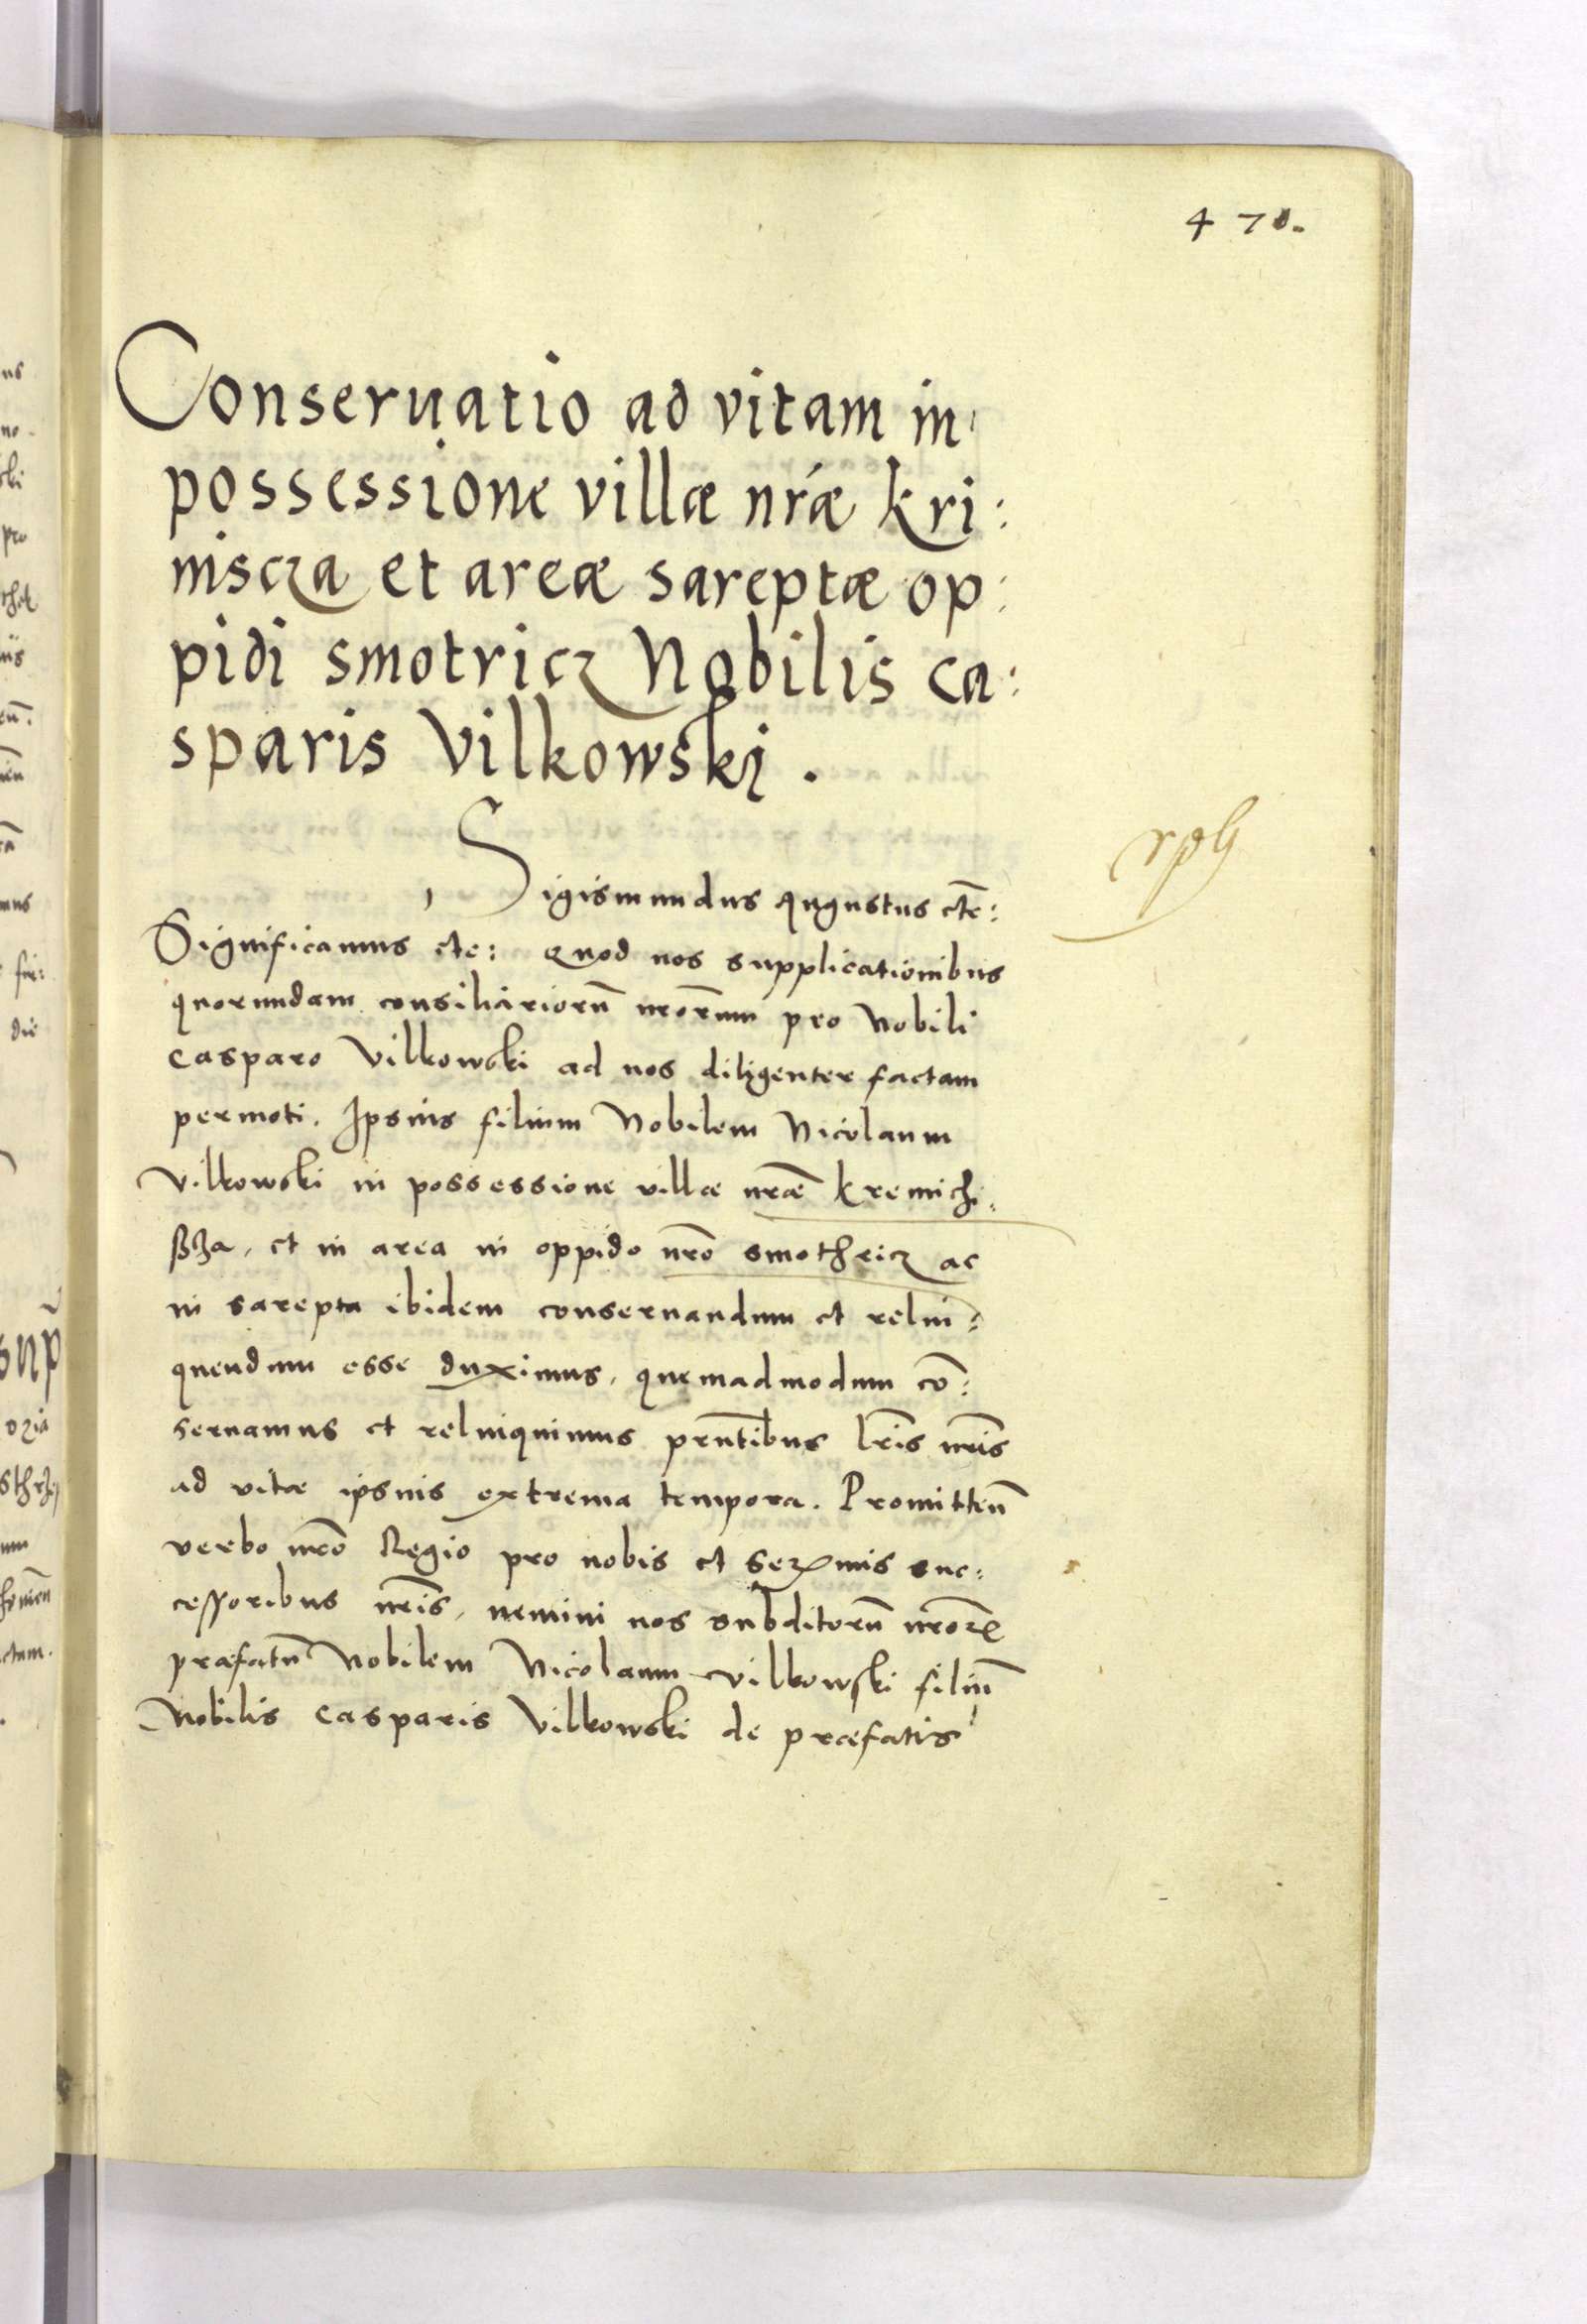 470.
Conseruatio ad vitam in
possessione villæ nr̃æ kri:
niscza et areæ sareptæ op:
pidi smotricz Nobilis ca:
sparis Vilkowskj.
Sigismundus Augustus etc̃:
Significamus etc: Quod nos supplicationibus
quorundam consiliariorũ nr̃orum pro Nobili
Casparo Vilkowski ad nos diligenter factam
permoti. Ipsius filium Nobilem Nicolaum
Vilkowski in possessione villæ nr̃æ Kremichi:
szcza, et in area in oppido nr̃o smothricz ac
in sarepta ibidem conseruandum et relin:
quendum esse duximus, quemadmodum cõ:
seruamus et relinquimus prñtibus lr̃is nr̃is
ad vitæ ipsius extrema tempora. Promitteñ
verbo nr̃o Regio pro nobis et Sermis suc:
cessoribus nr̃is, nemini nos subditorũ nr̃orꝝ
præfatũ Nobilem Nicolaum Vilkowski filiũ
Nobilis Casparis Vilkowski de præfatis